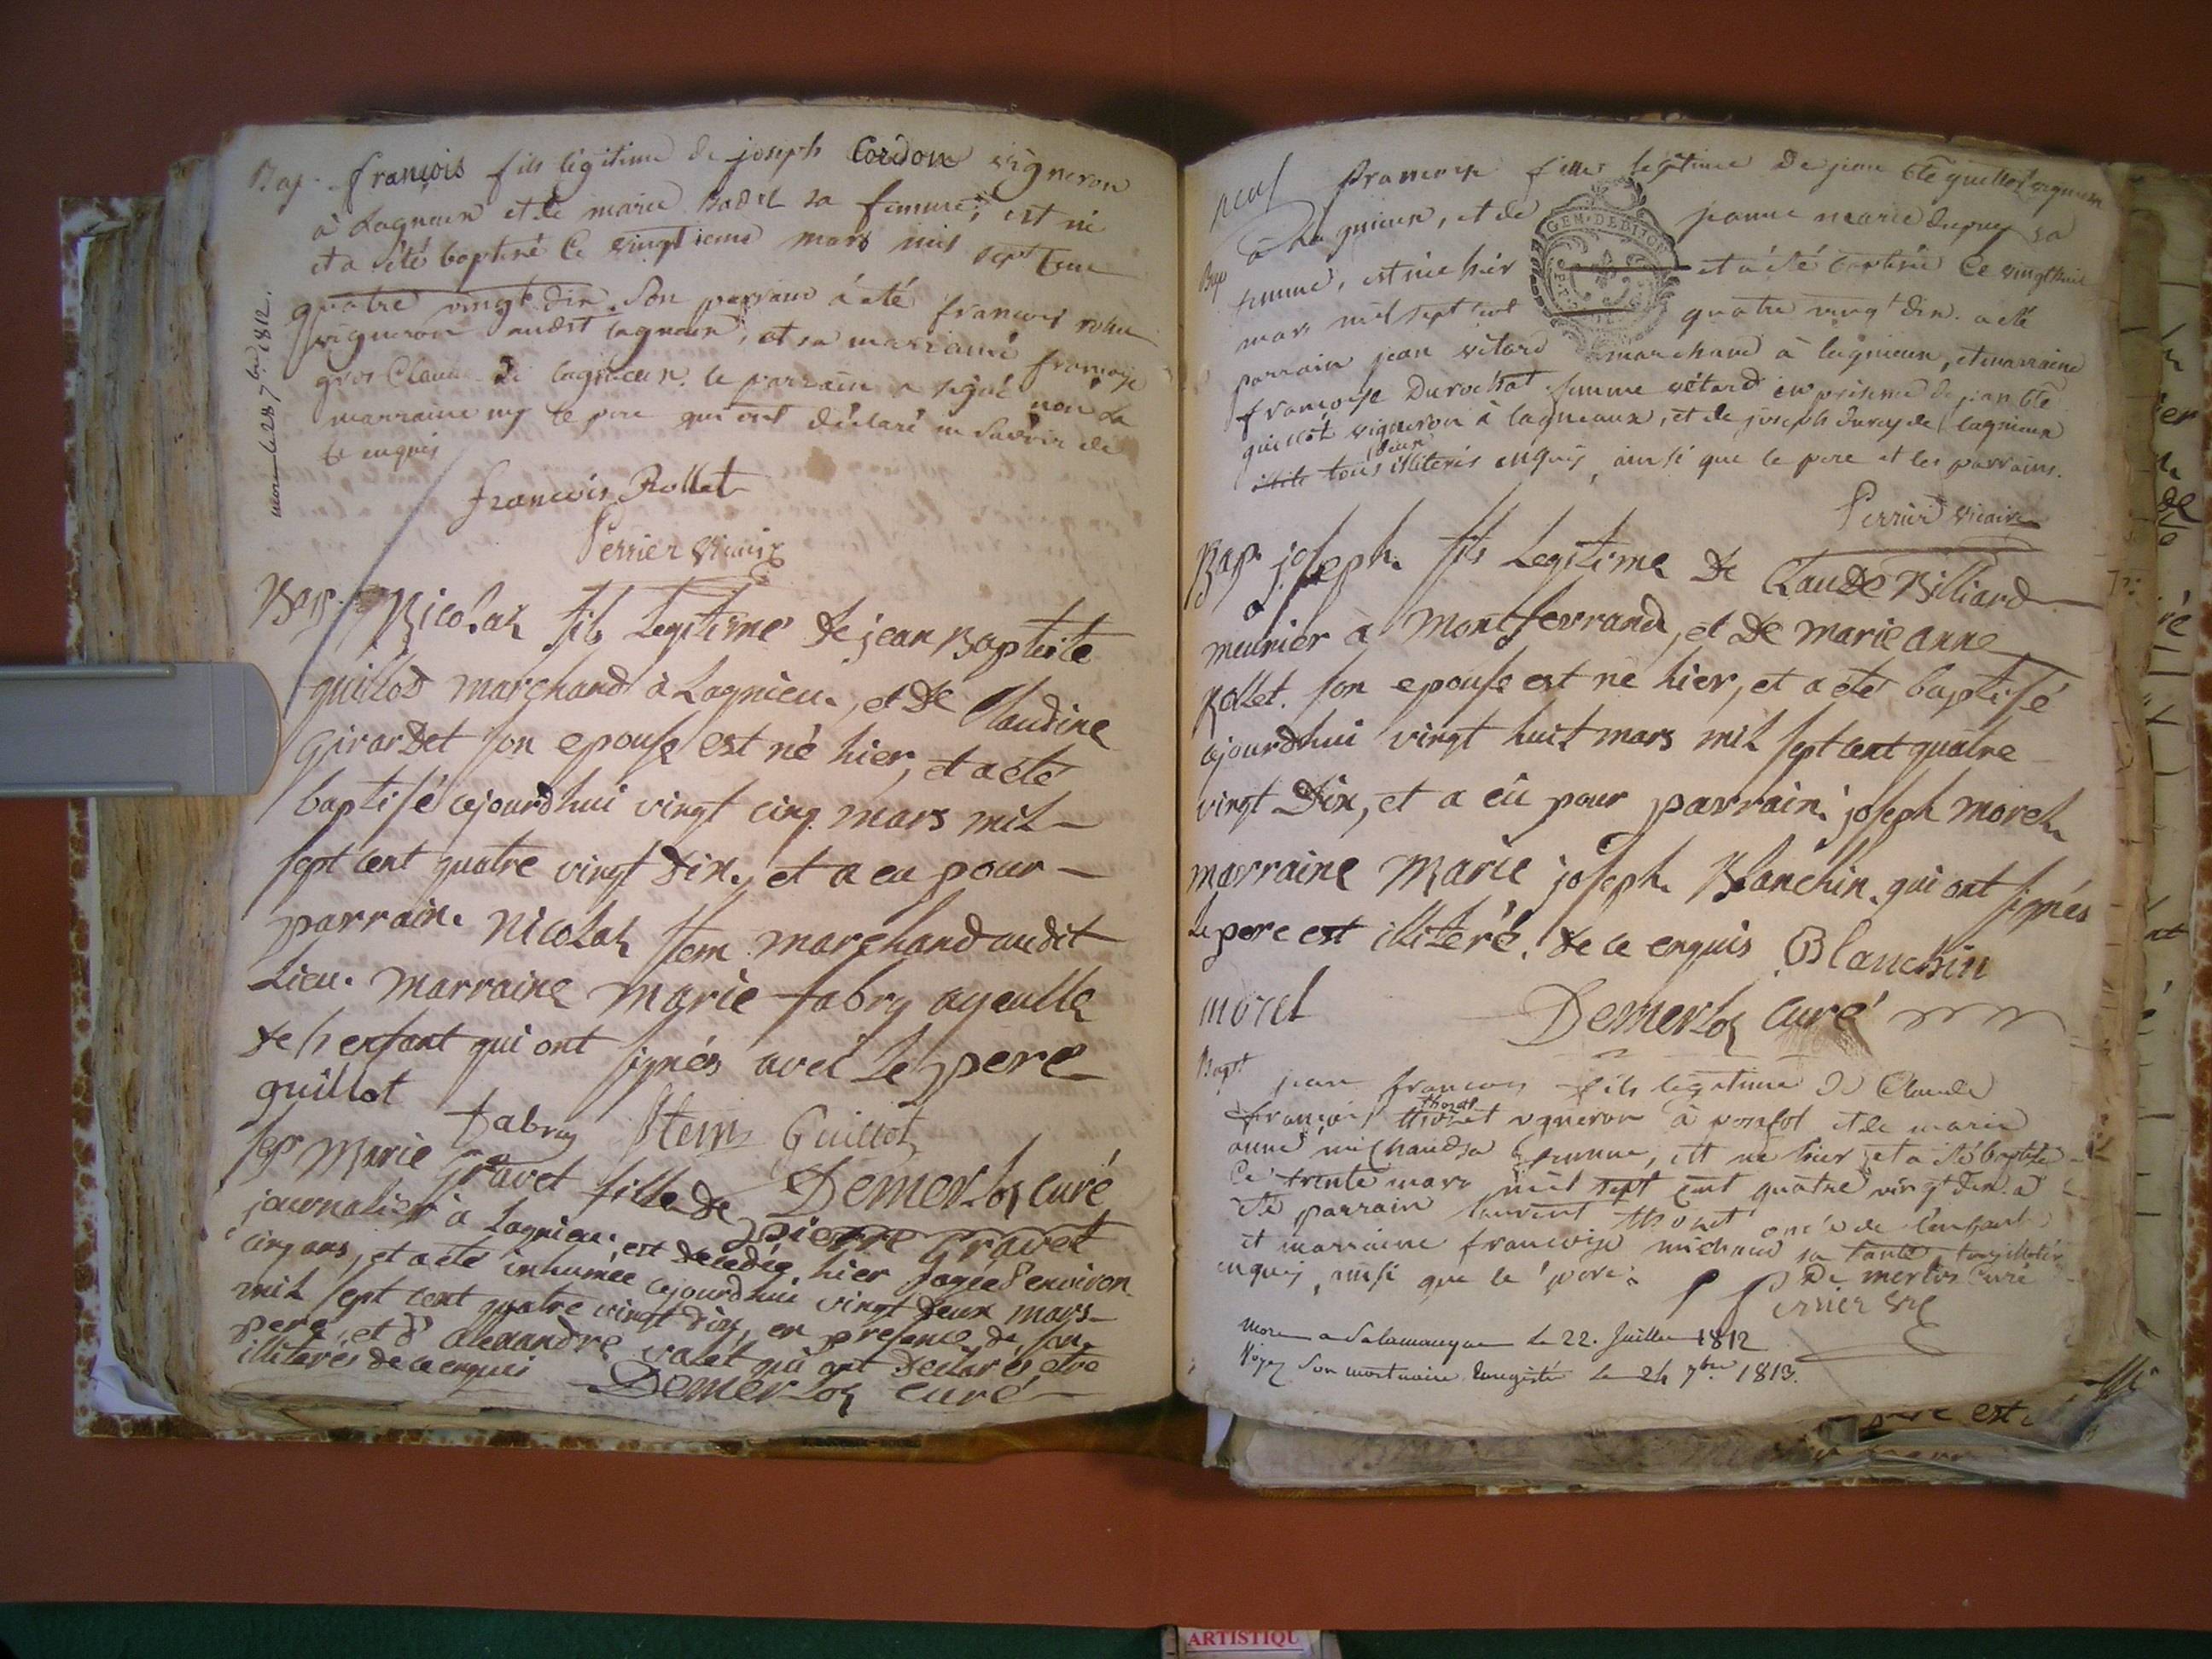 Bap. françois fils légitime de joseph Cordon vigneron
à Lagnieu et de marie sa femme, est né
et a été baptisé le vingtieme mars mil sept cent
quatre vingt dix. Son parrain a été françois
vigneron audit lagnieu, et sa marraine françoise
gros Claude de lagnieu. le parrain a signé non la
marraine ny le pere qui ont déclaré ne savoir de
ce enquis
more le 28 7bre 1812.
francois Rollet
Perrier vicaire
Bap. Nicolas fils Legitime de jean Baptiste
guillot marchand à Lagnieu, et de Claudine
Girardet son epouse est né hier, et a été
baptisé cejourdhui vingt cinq mars mil
sept cent quatre vingt dix, et a eu pour
parrain Nicolas Stem marchand audit
Lieu. Marraine Marie fabry ayeulle
de l'enfant qui ont signés avec Le pere
guillot
fabry Stem Guillot
Demerlos curé
Sep Marie Gravet fille de pierre Gravet
journalier à Lagnieu, est decedée hier agée d'environ
cinq ans, et a été inhumée cejourdhui vingt deux mars
mil sept cent quatre vingt dix, en presence de son
pere, et d'alexandre valet qui ont declarés etre
illiterés de ce enquis Demerlos curé
neuf
GEN. DE DIJON
Bap françoise fille légitime de jean bte guillot vigneron
à Lagnieu, et de jeanne marie dupuy sa
femme, est née hier et a été baptisée ce vingthuit
mars mil sept cent quatre vingt dix. a été
parrain jean vétard marchand à lagnieu, et marraine
françoise Durochat femme vétard en présence de jean bte
guillot vigneron à lagneaux, et de joseph de lagnieu
tous illiterés enquis, ainsi que le pere et les parrains.
Perrier vicaire
Bap. joseph fils Legitime de Claude Billiard
meunier à Montferrand, et de marie anne
Rollet son epouse est né hier, et a été baptisé
cejourdhui vingt huit mars mil sept cent quatre
vingt Dix, et a eû pour parrain joseph morel
marraine Marie joseph Blanchin qui ont signés
Le pere est illiteré de ce enquis Blanchin
morel Demerlos Curé
Bapt jean françois fils légitime de Claude
thozet
françois vigneron à posafol et de marie
anne michaud sa femme, est né hier et a été baptisé
Le trente mars mil sept cent quatre vingt dix. a
été parrain laurent thozet oncle de l'enfant
et marraine françoise michaud sa tante, tous illiterés
enquis, ainsi que le pere.
De merlos curé
Perrier vre
More a Salamanque le 22. Juillet 1812
Voyez Son mortuaire Enregistré le 24 7bre 1813.
pere est
ARTISTIQU